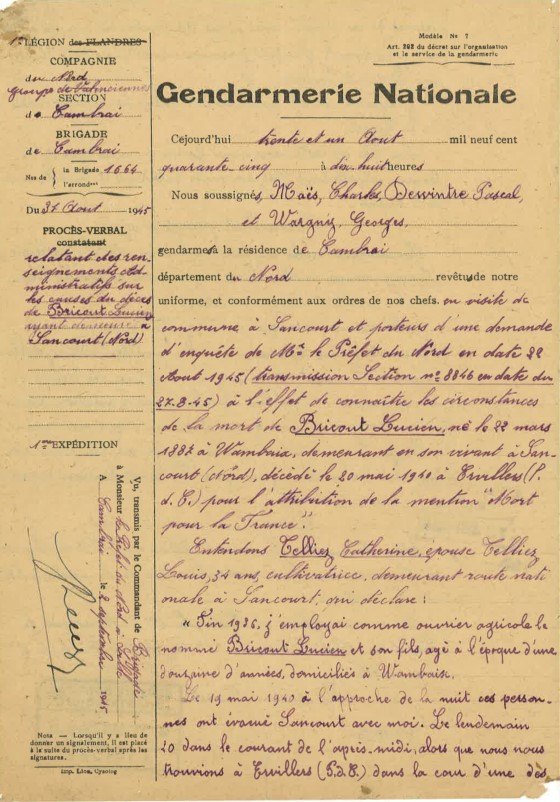 1re LÉGION des FLANDRES
COMPAGNIE
du Nord
groupe de Valenciennes
SECTION
de Cambrai
BRIGADE
de Cambrai
Nos de la Brigade 1664
l'arrondt
Du 31 Aout 1945
PROCÈS-VERBAL
constatant
relatant des ren-
seignements ad-
ministratifs sur
les causes du décès
de Bricout Lucien
ayant demeuré à
Sancourt (Nord)
1re EXPÉDITION
Vu, transmis par le Commandant de Brigade
à Monsieur le Préfet du Nord à Lille
A Cambrai le 2 septembre 1945
Nota — Lorsqu'il y a lieu de
donner un signalement, il est placé
à la suite du procès-verbal après les
signatures.
Imp. Liém, Cysoing
Modèle No 7
Art. 292 du décret sur l'organisation
et le service de la gendarmerie
Gendarmerie Nationale
Cejourd'hui trente et un Aout mil neuf cent
quarante-cinq à dix-huit heures
Nous soussignés, Maës, Charles, Desvintre Pascal,
et Wargny, Georges,
gendarmes à la résidence de Cambrai
département du Nord revêtus de notre
uniforme, et conformément aux ordres de nos chefs. en visite de
commune à Sancourt et porteurs d'une demande
d'enquête de Mr le Préfet du Nord en date 22
Aout 1945 (transmission Section no 8846 en date du
27.8.45) à l'effet de connaître les circonstances
de la mort de Bricout Lucien, né le 22 mars
1887 à Wambaix, demeurant en son vivant à San-
court (Nord), décédé le 20 mai 1940 à Ervillers (P.
d. C.) pour l'attribution de la mention "Mort
pour la France".
Entendons Telliez Catherine, epouse Telliez
Louis, 34 ans, cultivatrice, demeurant route nati
onale à Sancourt, qui déclare :
" Fin 1936, j'employai comme ouvrier agricole le
nommé Bricout Lucien et son fils, agé à l'époque d'une
douzaine d'années, domiciliés à Wambaix.
Le 19 mai 1940 à l'approche de la nuit ces person-
nes ont évacué Sancourt avec moi. Le lendemain
20 dans le courant de l'après-midi, alors que nous nous
trouvions à Ervillers (P.d.C.) dans la cour d'une des